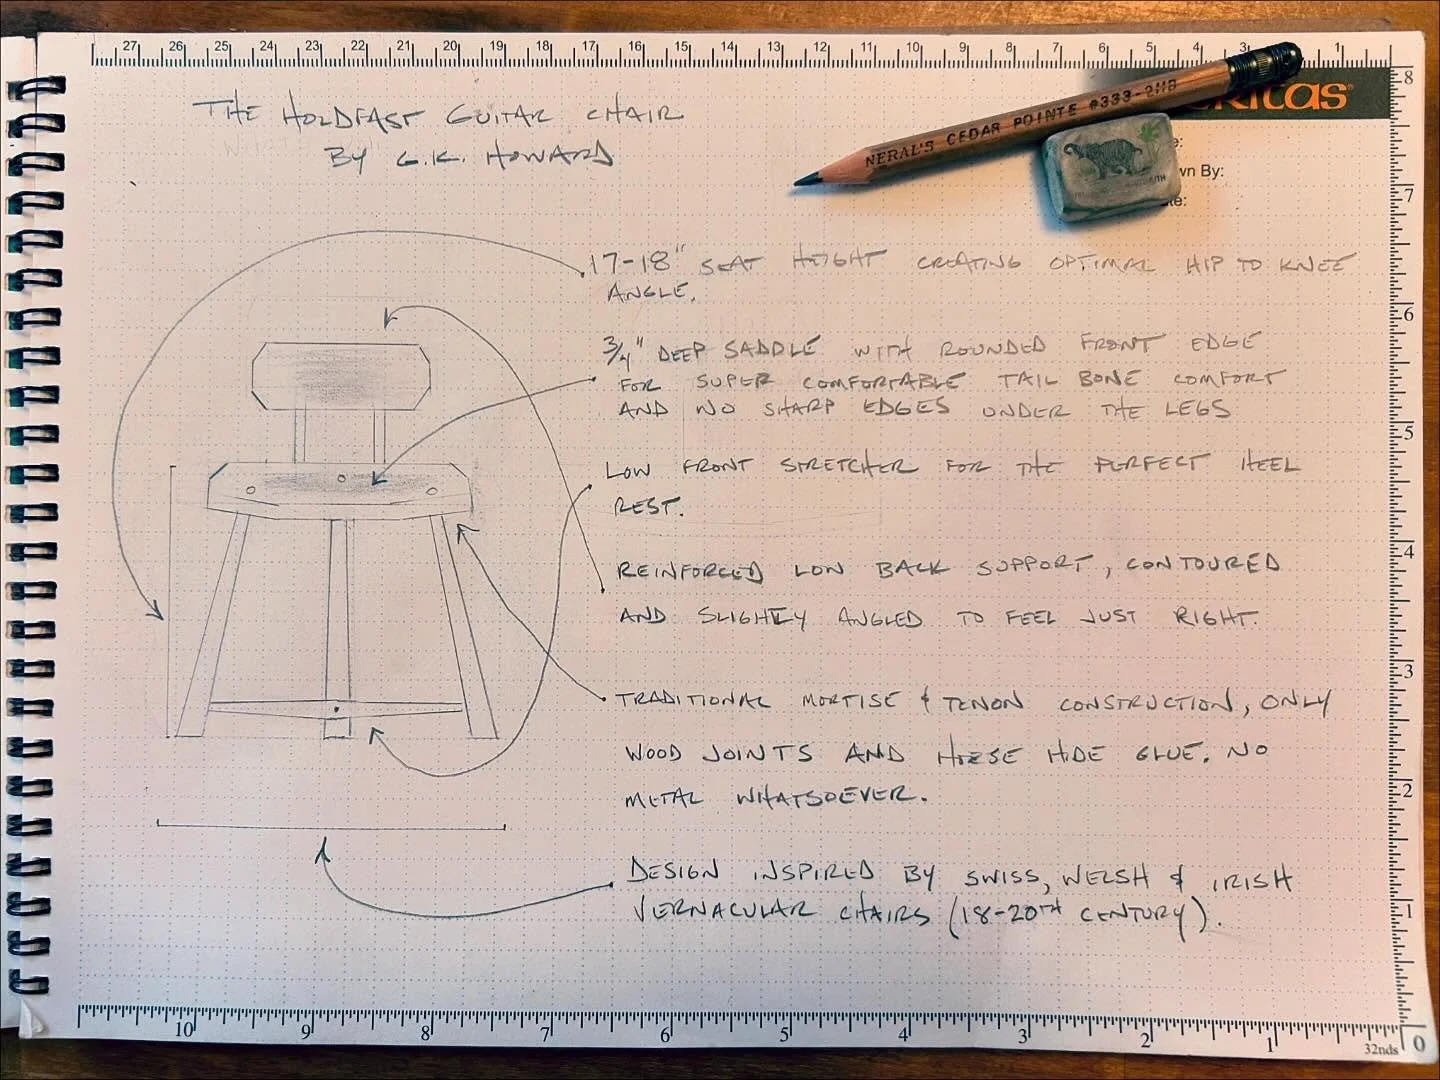 27 26 25 24 23 22 21 20 19 18 17 16 15 14 13 12 11 10 9 8 7 6 5 4 3 1
THE HOLDFAST GUITAR CHAIR
BY G.K. HOWARD
NERAL'S CEDAR POINTE #333-2HB
ritas®
wn By:
17-18" SEAT HEIGHT CREATING OPTIMAL HIP TO KNEE
ANGLE.
3/4" DEEP SADDLE WITH ROUNDED FRONT EDGE
FOR SUPER COMFORTABLE TAIL BONE COMFORT
AND NO SHARP EDGES UNDER THE LEGS
LOW FRONT STRETCHER FOR THE PERFECT HEEL
REST.
REINFORCED LOW BACK SUPPORT, CONTOURED
AND SLIGHTLY ANGLED TO FEEL JUST RIGHT.
TRADITIONAL MORTISE & TENON CONSTRUCTION, ONLY
WOOD JOINTS AND HORSE HIDE GLUE. NO
METAL WHATSOEVER.
DESIGN INSPIRED BY SWISS, WELSH & IRISH
VERNACULAR CHAIRS (18-20TH CENTURY).
8
7
6
5
4
3
2
1
10 9 8 7 6 5 4 3 2 1 32nds 0